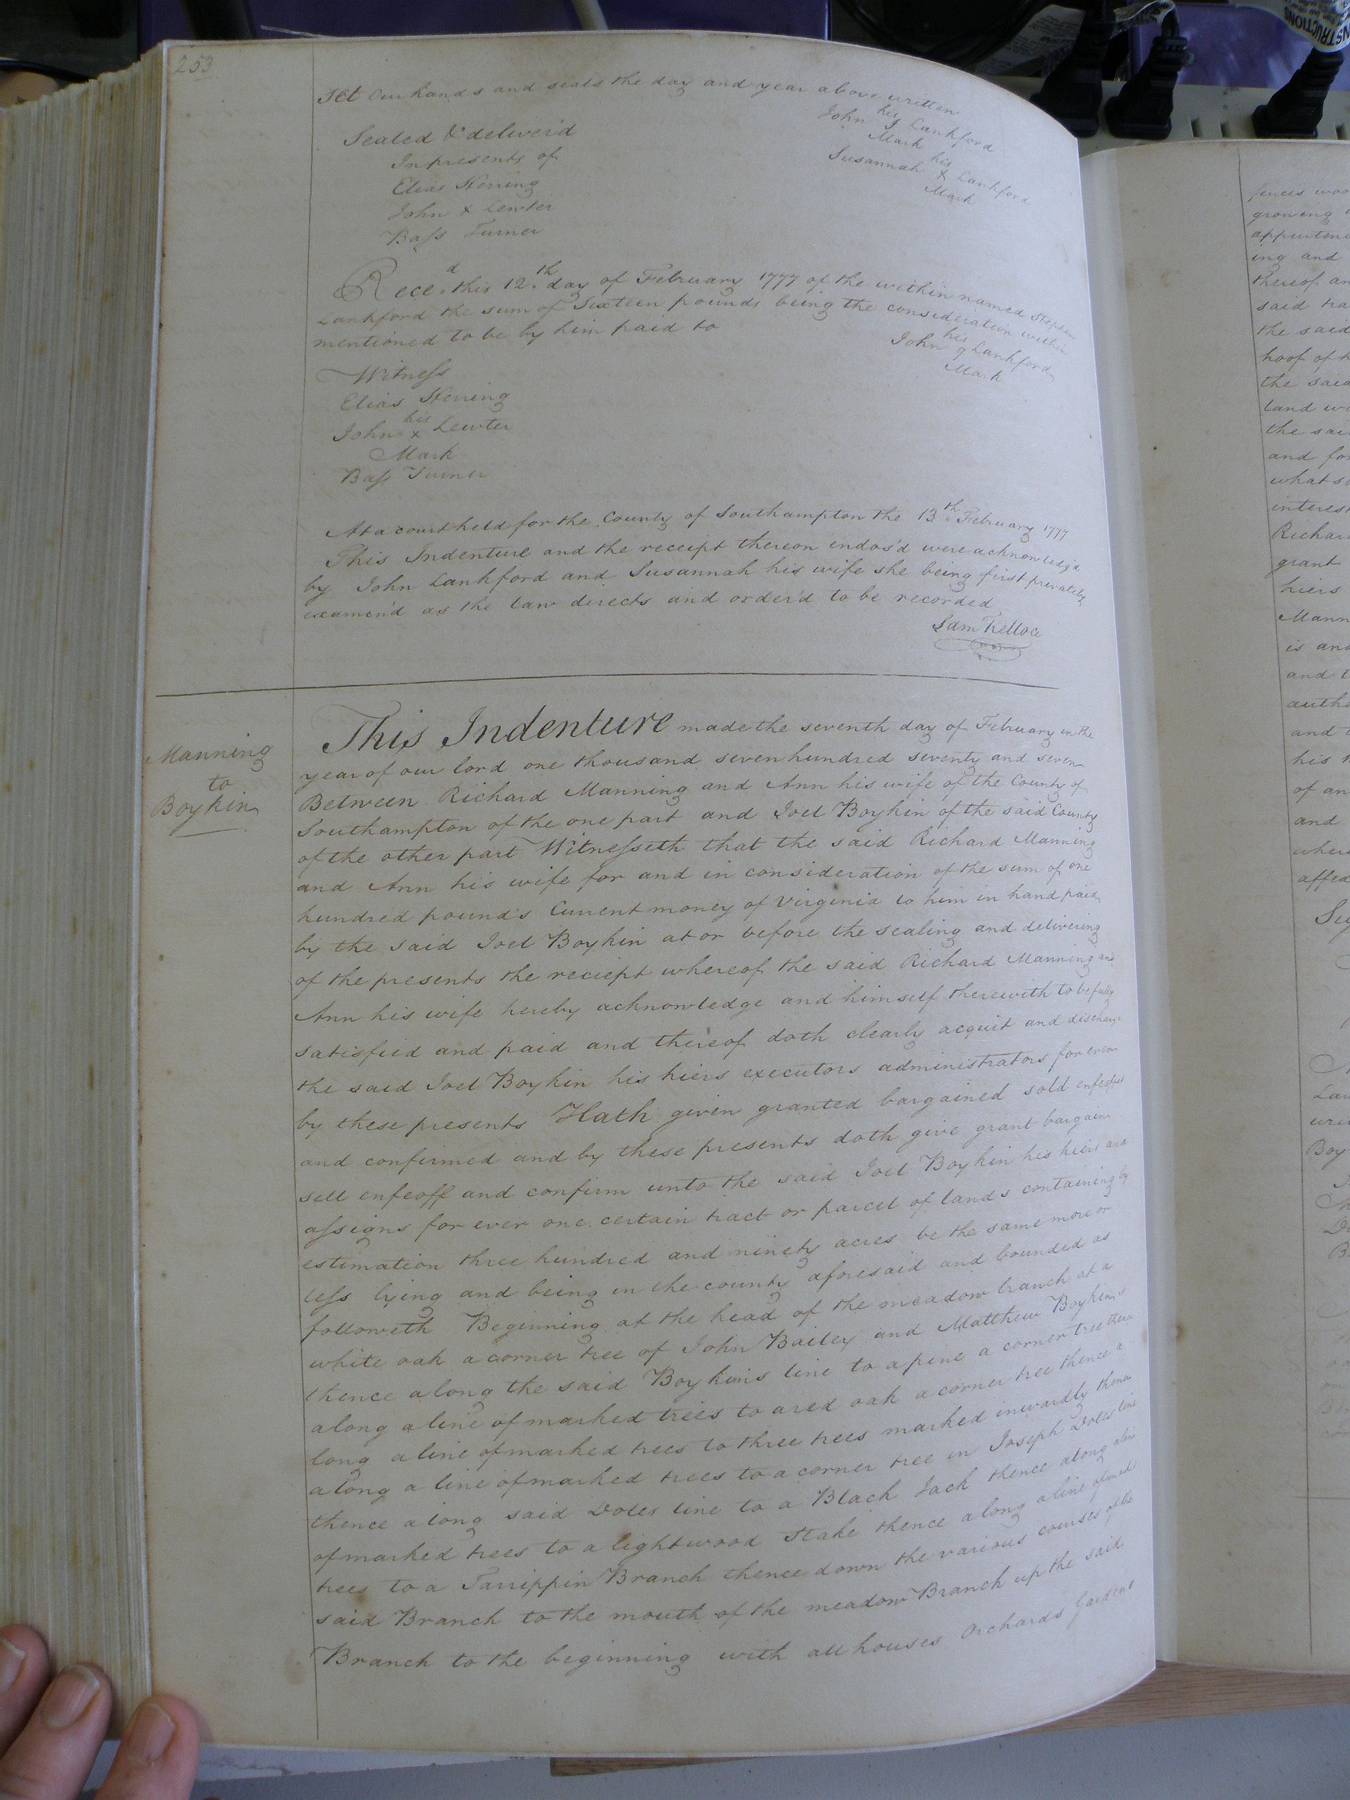 253
set our hands and seals the day and year above written
John his Lankford
Mark
Susannah his x Lankford
Mark
Sealed & deliver'd
In presents of
Elias Herring
John x Lewter
Bass Turner
Rece.d this 12.th day of February 1777 of the within named Stephen
Lankford the sum of Sixteen pounds being the consideration within
mentioned to be by him paid to
John his Lankford
Mark
Witness
Elias Herring
John his x Lewter
Mark
Bass Turner
At a court held for the County of Southampton the 13.th February 1777
This Indenture and the receipt thereon endos'd were acknowledg'd
by John Lankford and Susannah his wife she being first privately
examen'd as the law directs and order'd to be recorded
Sam Kelloce
Manning
to
Boykin
This Indenture made the seventh day of February in the
year of our lord one thousand seven hundred seventy and seven
Between Richard Manning and Ann his wife of the County of
Southampton of the one part and Joel Boykin of the said County
of the other part Witnesseth that the said Richard Manning
and Ann his wife for and in consideration of the sum of one
hundred pounds Current money of Virginia to him in hand paid
by the said Joel Boykin at or before the sealing and delivering
of the presents the reciept whereof the said Richard Manning and
Ann his wife hereby acknowledge and himself therewith to be fully
satisfied and paid and thereof doth clearly acquit and discharge
the said Joel Boykin his hiers executors administrators for ever
by these presents Hath given granted bargained sold enfeoffed
and confirmed and by these presents doth give grant bargain
sell enfeoff and confirm unto the said Joel Boykin his hiers and
assigns for ever one certain tract or parcel of lands containing by
estimation three hundred and ninety acres be the same more or
less lying and being in the county aforesaid and bounded as
followeth Beginning at the head of the meadow branch at a
white oak a corner tree of John Bailey and Matthew Boykin's
thence along the said Boykins line to a pine a corner tree then
along a line of marked trees to a red oak a corner tree thence a
long a line of marked trees to three trees marked inwardly thence
along a line of marked trees to a corner tree in Joseph Doles line
thence along said Doles line to a Black Jack thence along a line
of marked trees to a lightwood Stake thence along a line of marked
trees to a Tarrippin Branch thence down the various courses of the
said Branch to the mouth of the meadow Branch up the said
Branch to the beginning with all houses Orchards Gardens
growing
ing and
thereof an
said tra
the said
hoof of
the said
land w
the sai
and for
what s
interest
Richard
grant
hiers
Mann
is and
and t
autho
and
his
of an
and
where
affed
Boy
INSTRUCTIONS